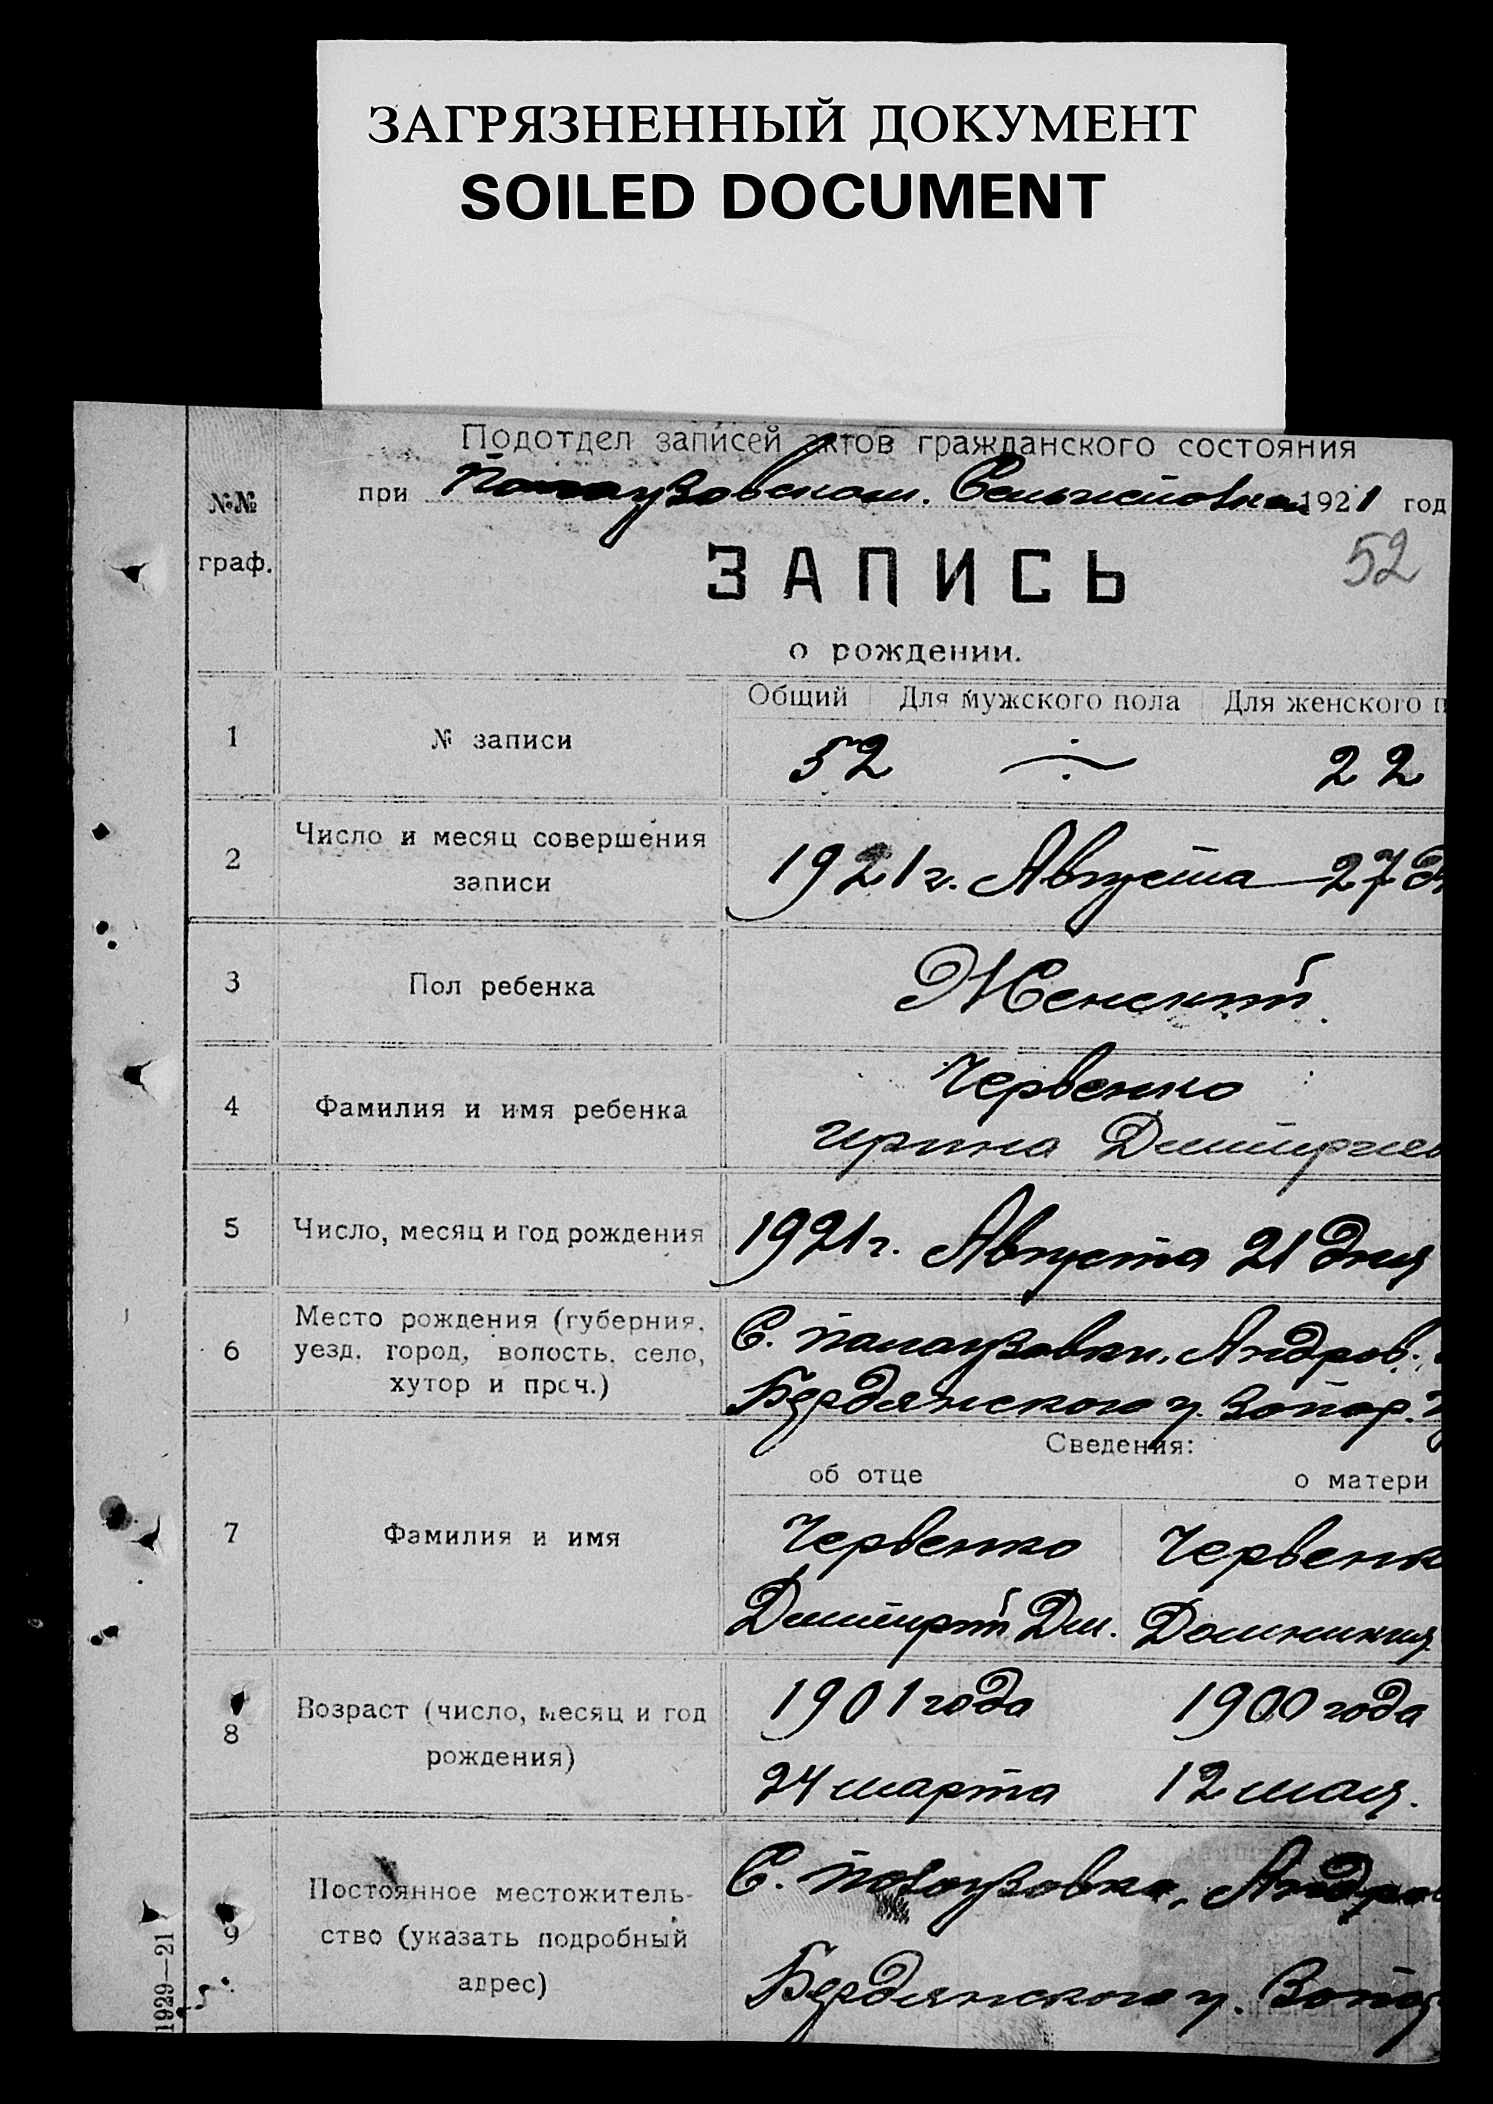 ЗАГРЯЗНЕННЫЙ ДОКУМЕНТ
SOILED DOCUMENT
Подотдел записей актов гражданского состояния
при 1921 год
№№
граф.
52
ЗАПИСЬ
о рождении.
Общий Для мужского пола Для женского п
1 № записи 52 22
2 Число и месяц совершения
записи
1921 г. Августа 27 д
3 Пол ребенка Женский
4 Фамилия и имя ребенка
Червенко
Ирина Димитриев
5 Число, месяц и год рождения 1921 г. Августа 21 дня
6 Место рождения (губерния,
уезд, город, волость, село,
хутор и проч.)
С. Палаузовки, Андров.
Бердянского у. Запор.
Сведения:
об отце о матери
7 Фамилия и имя
Червенко Червенк
Димитрий Дм. Домникия
8 Возраст (число, месяц и год
рождения)
1901 года 1900 года
24 марта 12 мая.
9 Постоянное местожитель-
ство (указать подробный
адрес)
С. Палаузовка, Андро
Бердянского у. Запор
1929—21